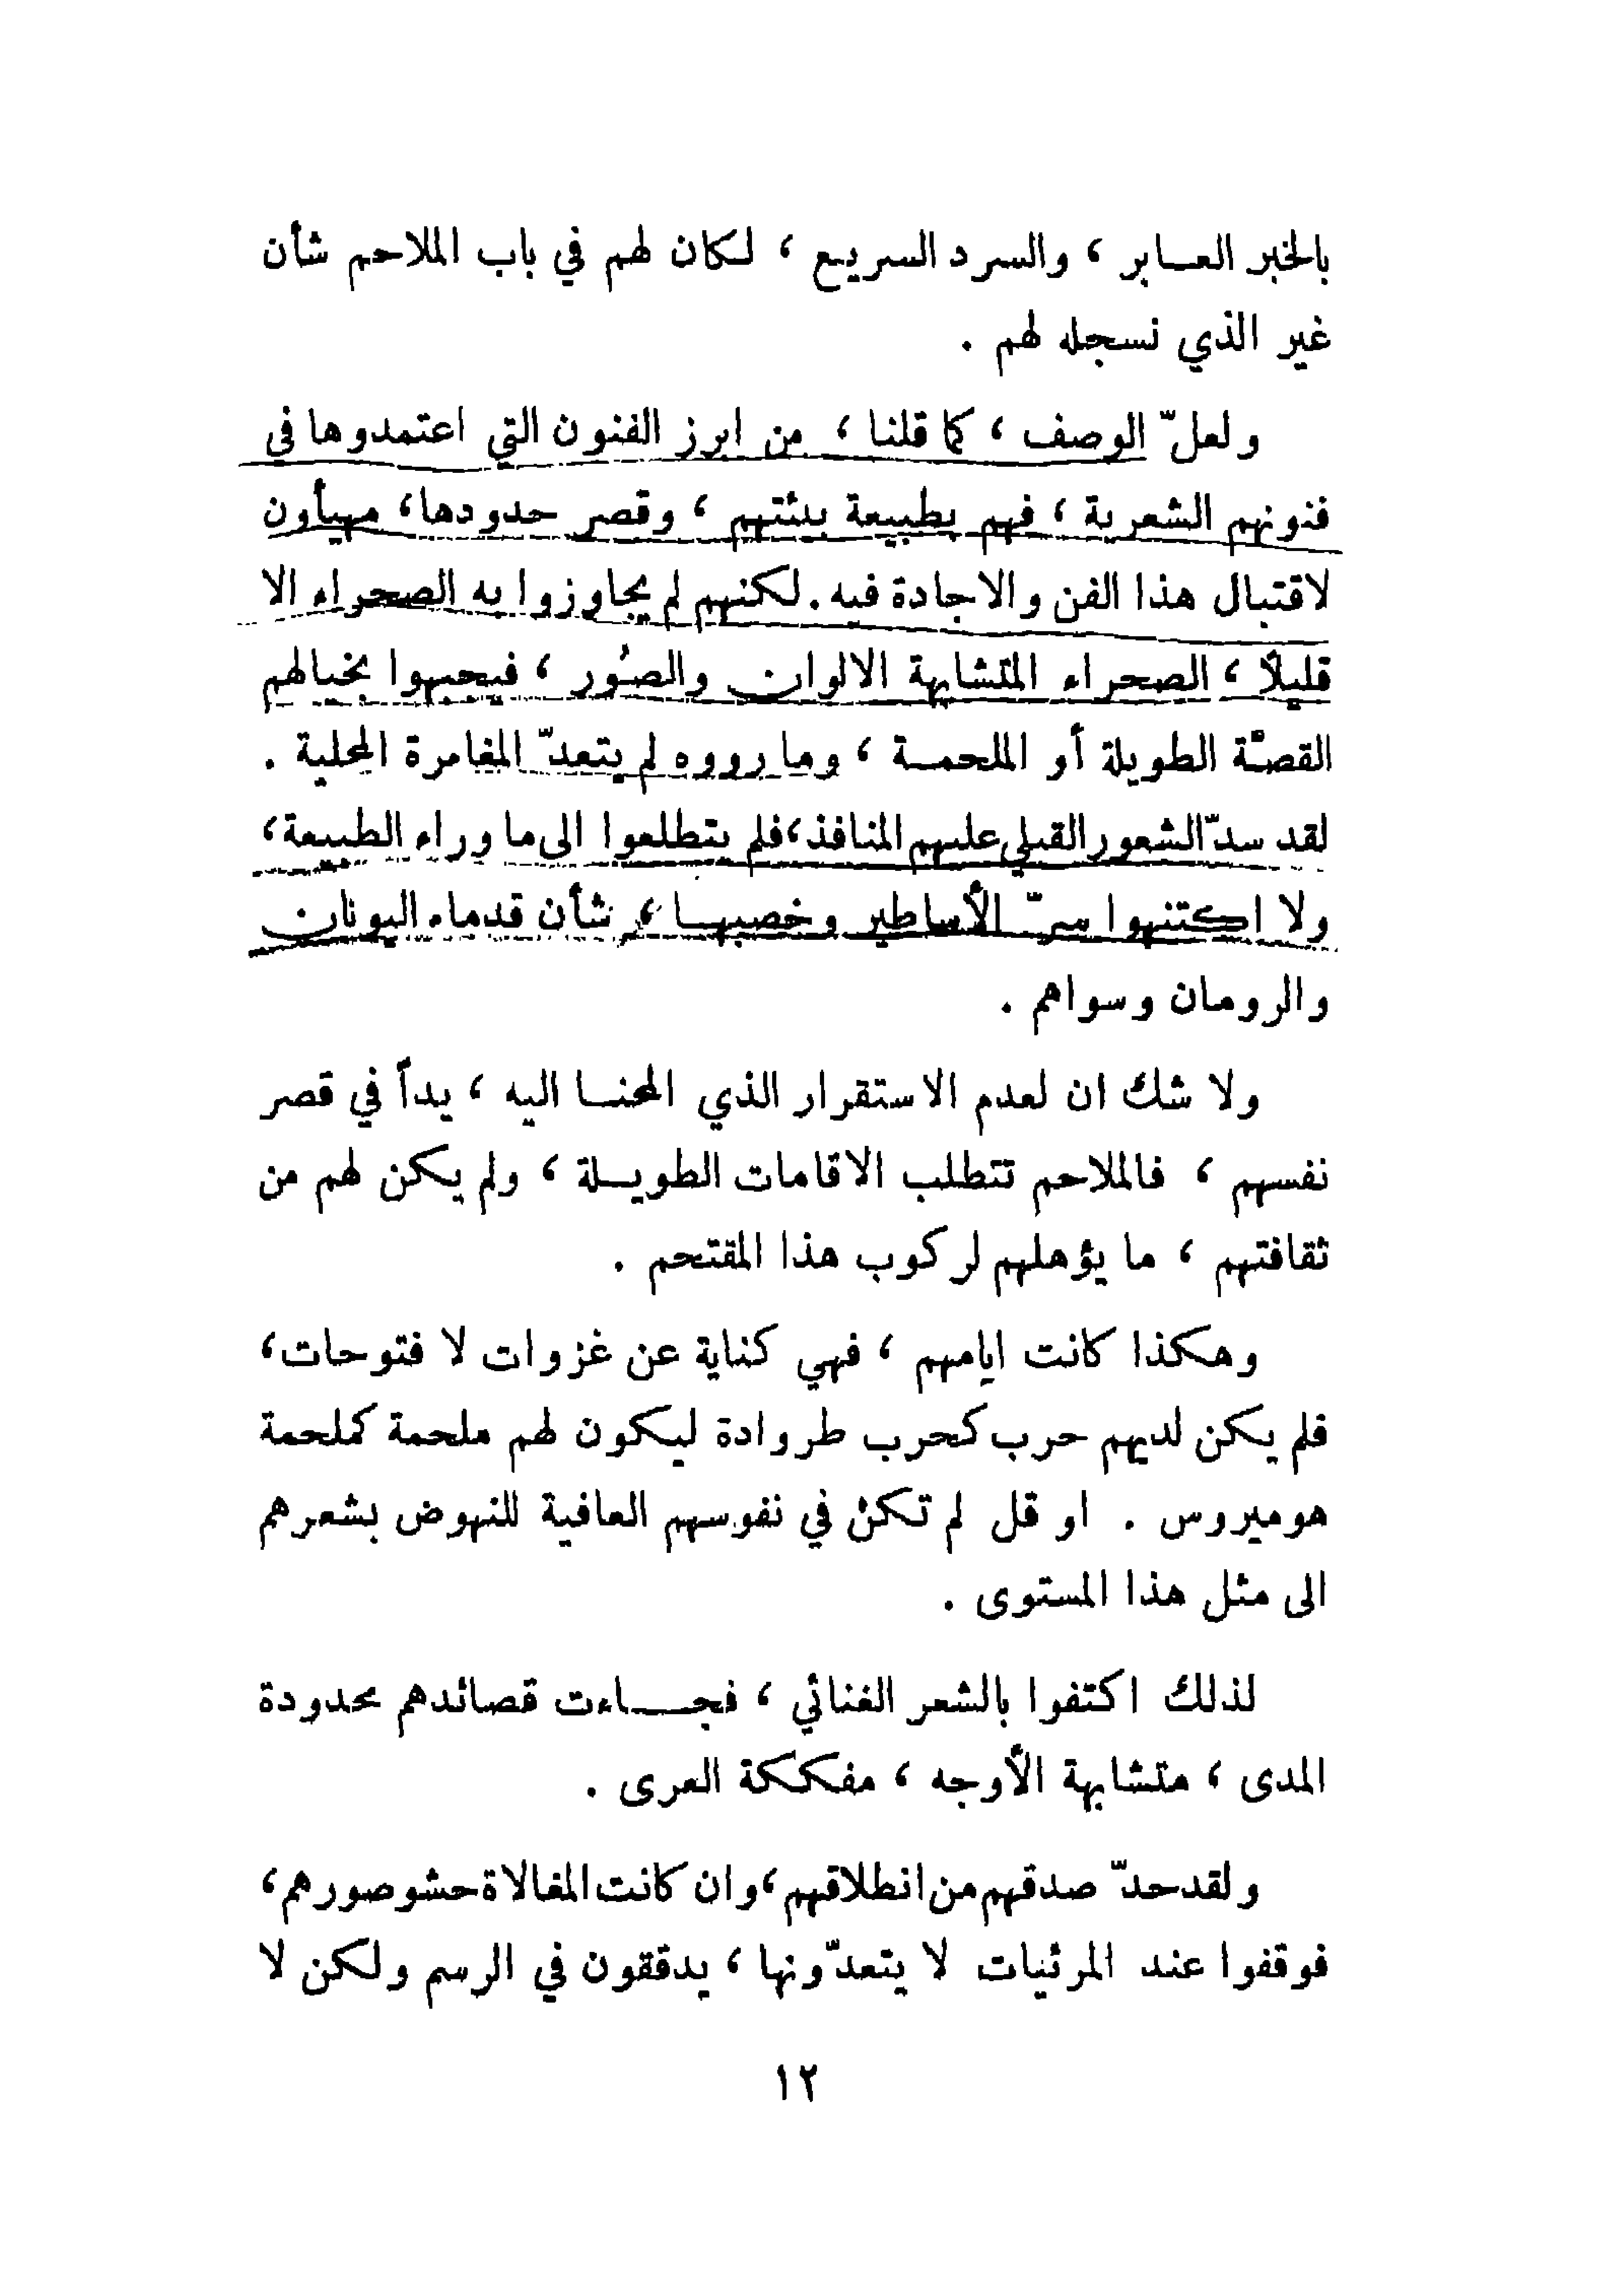 بالخبر العابر ، والسرد السريع ، لكان لهم في باب الملاحم شأن
غير الذي نسجله لهم .
ولعلّ الوصف ، كما قلنا ، من ابرز الفنون التي اعتمدوها في
فنونهم الشعرية ، فهم بطبيعة بيئتهم ، وقصر حدودها ، مهيأون
لاقتبال هذا الفن والاجادة فيه . لكنهم لم يجاوزوا به الصحراء الا
قليلًا ، الصحراء المتشابهة الالوان والصُور ، فيجبهوا بخيالهم
القصّة الطويلة أو الملحمة ، وما رووه لم يتعدّ المغامرة المحلية .
لقد سدّ الشعور القبلي عليهم المنافذ ، فلم يتطلعوا الى ما وراء الطبيعة ،
ولا اكتنهوا سرّ الأساطير وخصبها ، شأن قدماء اليونان
والرومان وسواهم .
ولا شك ان لعدم الاستقرار الذي المحنا اليه ، يداً في قصر
نفسهم ، فالملاحم تتطلب الاقامات الطويلة ، ولم يكن لهم من
ثقافتهم ، ما يؤهلهم لركوب هذا المقتحم .
وهكذا كانت ايامهم ، فهي كناية عن غزوات لا فتوحات ،
فلم يكن لديهم حرب كحرب طروادة ليكون لهم ملحمة كملحمة
هوميروس . او قل لم تكن في نفوسهم العافية للنهوض بشعرهم
الى مثل هذا المستوى .
لذلك اكتفوا بالشعر الغنائي ، فجاءت قصائدهم محدودة
المدى ، متشابهة الأوجه ، مفككة العرى .
ولقد حدّ صدقهم من انطلاقهم ، وان كانت المغالاة حشو صورهم ،
فوقفوا عند المرئيات لا يتعدّونها ، يدققون في الرسم ولكن لا
١٢